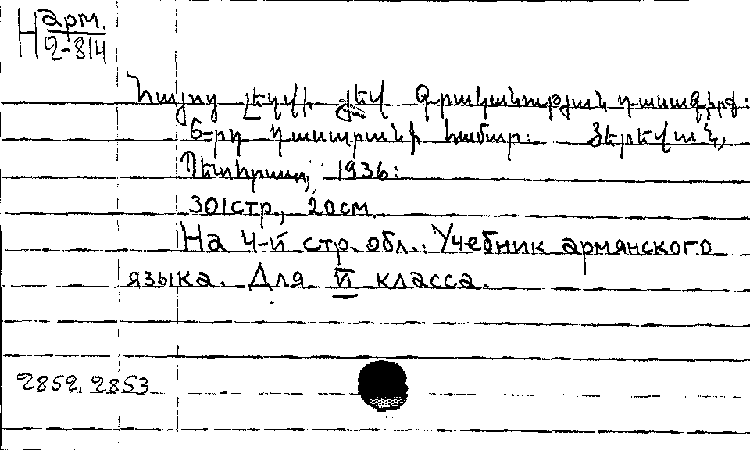 Н арм.
2-814
Հայոց լեզվի յեվ գրականության դասագիրք:
6-րդ դասարանի համար: Յերեվան,
Պետհրատ, 1936:
301стр., 20см.
На 4-й стр. обл.: Учебник армянского
языка. Для VI класса.
2852, 2853